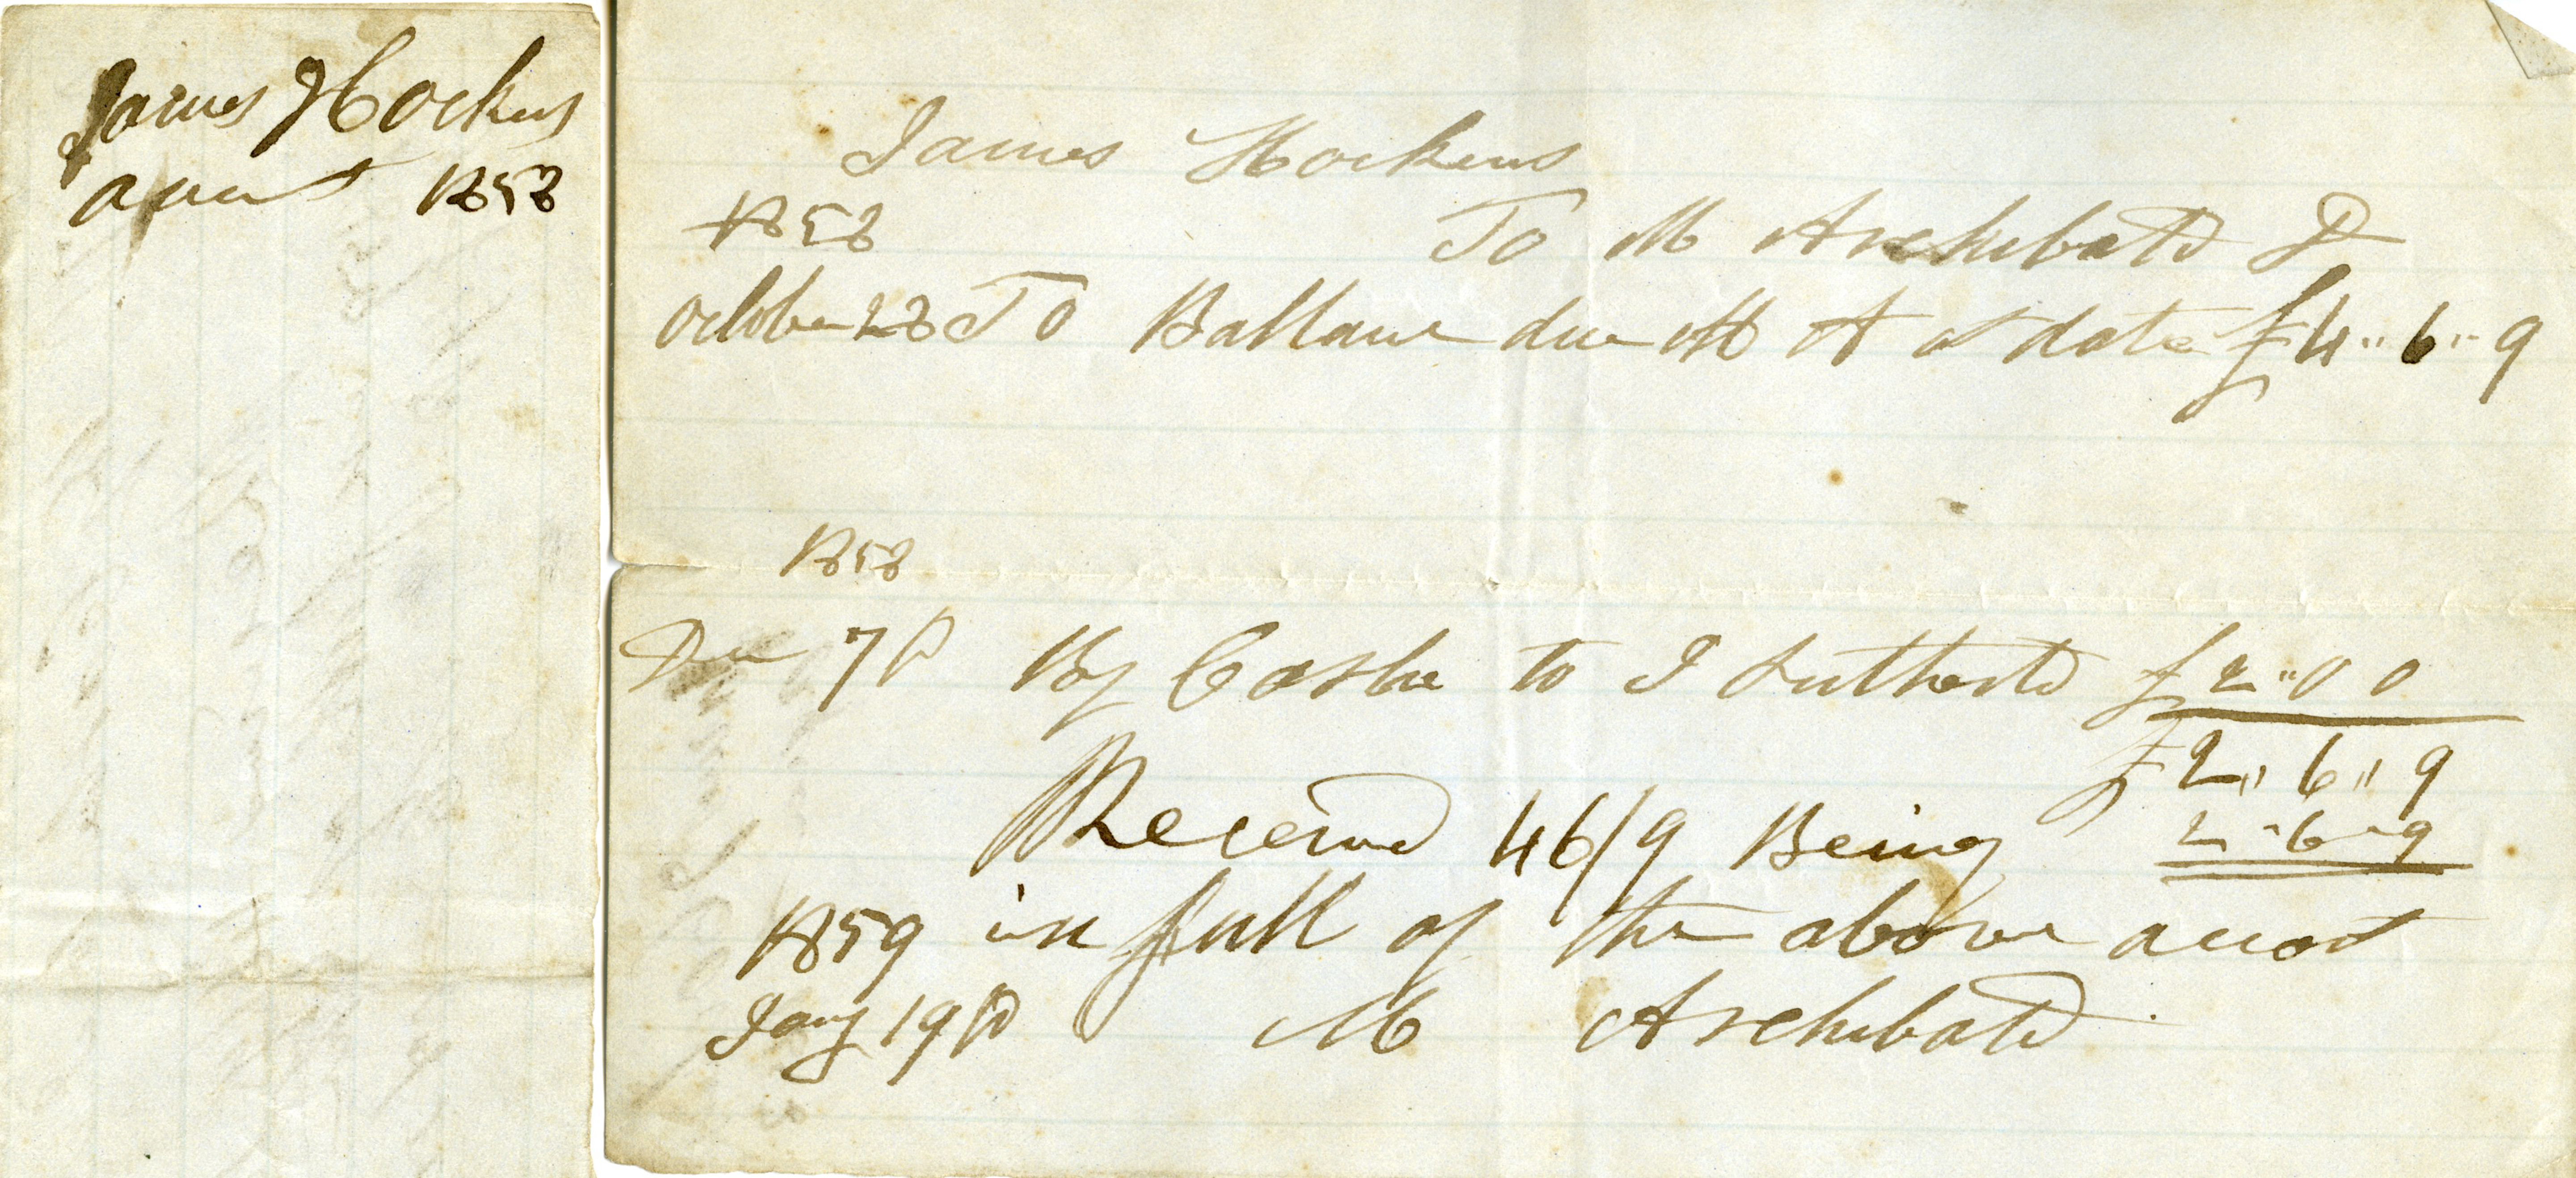 James Hockens
acount 1858
James Hockens
1858 To M Archibald Dr
October 28 To Ballance due M A at date £4 " 6 " 9
1858
Dec 7th By Cashe to I Sutherld £2 " 0 0
£2 " 6 " 9
Received 46/9 Being 2 - 6 - 9
1859 in full of the above acoot
Jany 19th M Archibald